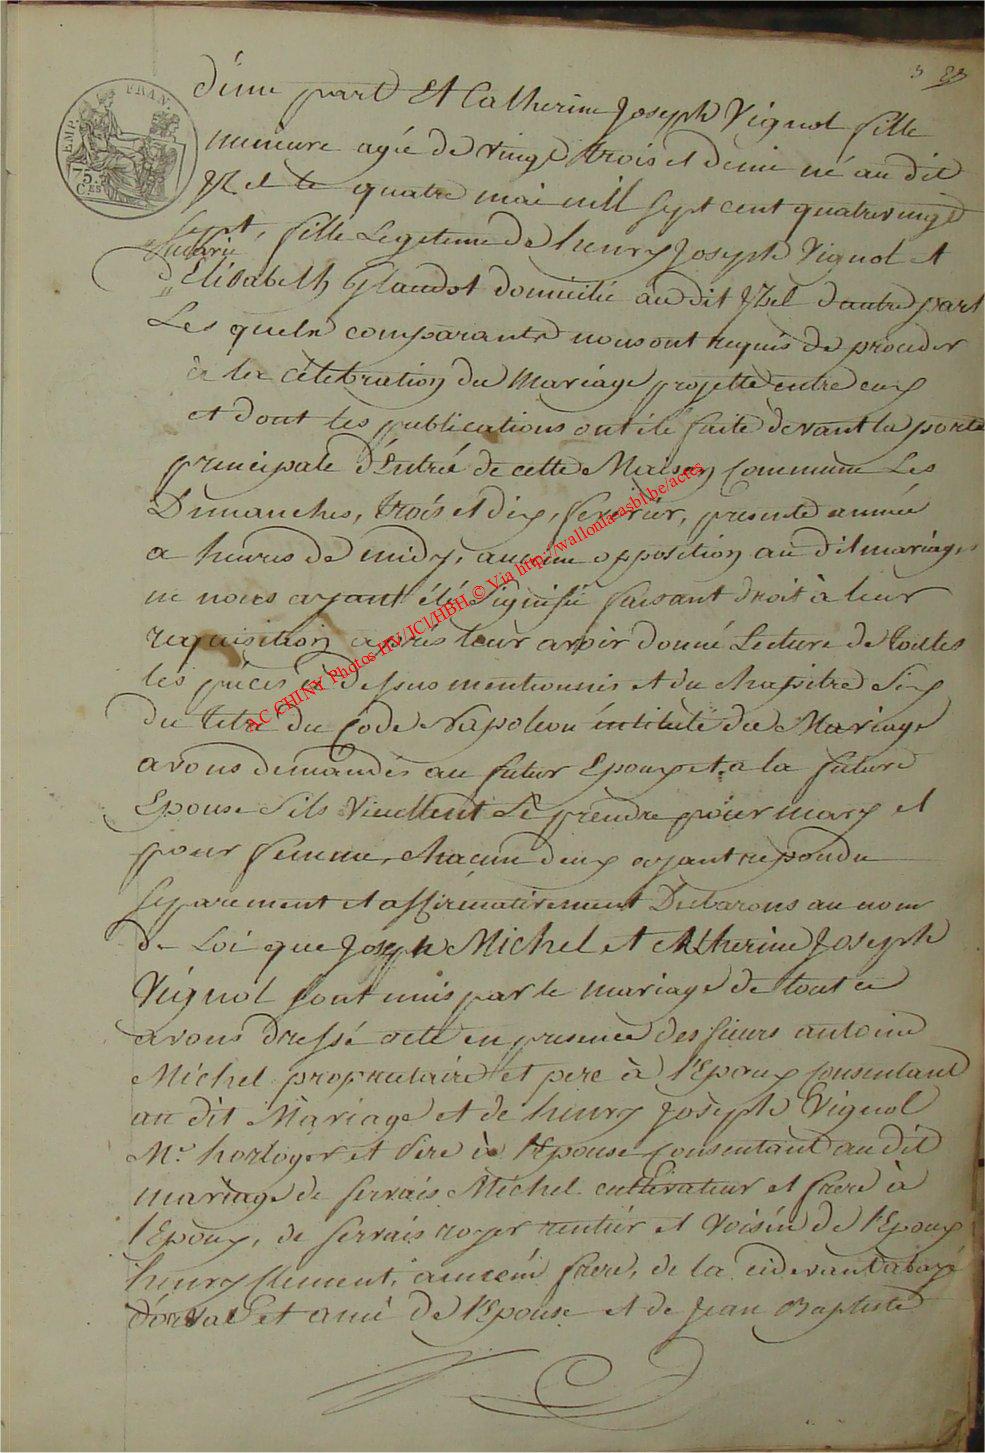 3 23
EMP. FRAN.
75
CES
d'une part Et Catherine Joseph Vignol fille
mineure agée de vingt trois et demie né au dit
Jzel le quatre mai mill sept cent quatrevingt
sept, fille Legeteme de henry Joseph Vignol et
d'Elisabeth Glaudot domicilié au dit Jzel d'autre part
Les quels comparants nous ont requis de proceder
à la célébration du Mariage projetté entre eux
et dont les publications ont été faite devant la porte
principale d'Entrée de cette Maison Commune Les
Dimanches, trois et dix, fevrier, presente année
a heures de midy, aucune opposition au dit mariage
ne nous ayant été Signifié faisant droit à leur
requisition après leur avoir donné Lecture de toutes
les pièces ci dessus mentionnés et du chapitre Six
du titre du Code Napoleon intitulé du Mariage
avons demandés au futur Epoux et a la future
Epouse s'ils Veuellent Se prendre pour mary et
pour femme, chacun d'eux ayant repondu
separement et affirmativement Declarons au nom
de Loi que Joseph Michel et Catherine Joseph
Vignol sont unis par le mariage de tout ce
avons dressé acte en presence des sieurs antoine
Michel propriétaire et pere à l'Epoux Consentant
au dit Mariage et de henry Joseph Vignol
Me horloger et Pere à l'Epouse Consentant au dit
mariage de servais Michel cultivateur et frere à
l'Epoux, de servais roger rentier et Voisin de l'Epoux
henry Clement, ancien frere, de la cidevant abaye
d'orval et amie de l'Epouse et de Jean Baptiste
AC CHINY Photos HV/JCl/HBH © Via http://wallonia-asbl.be/actes